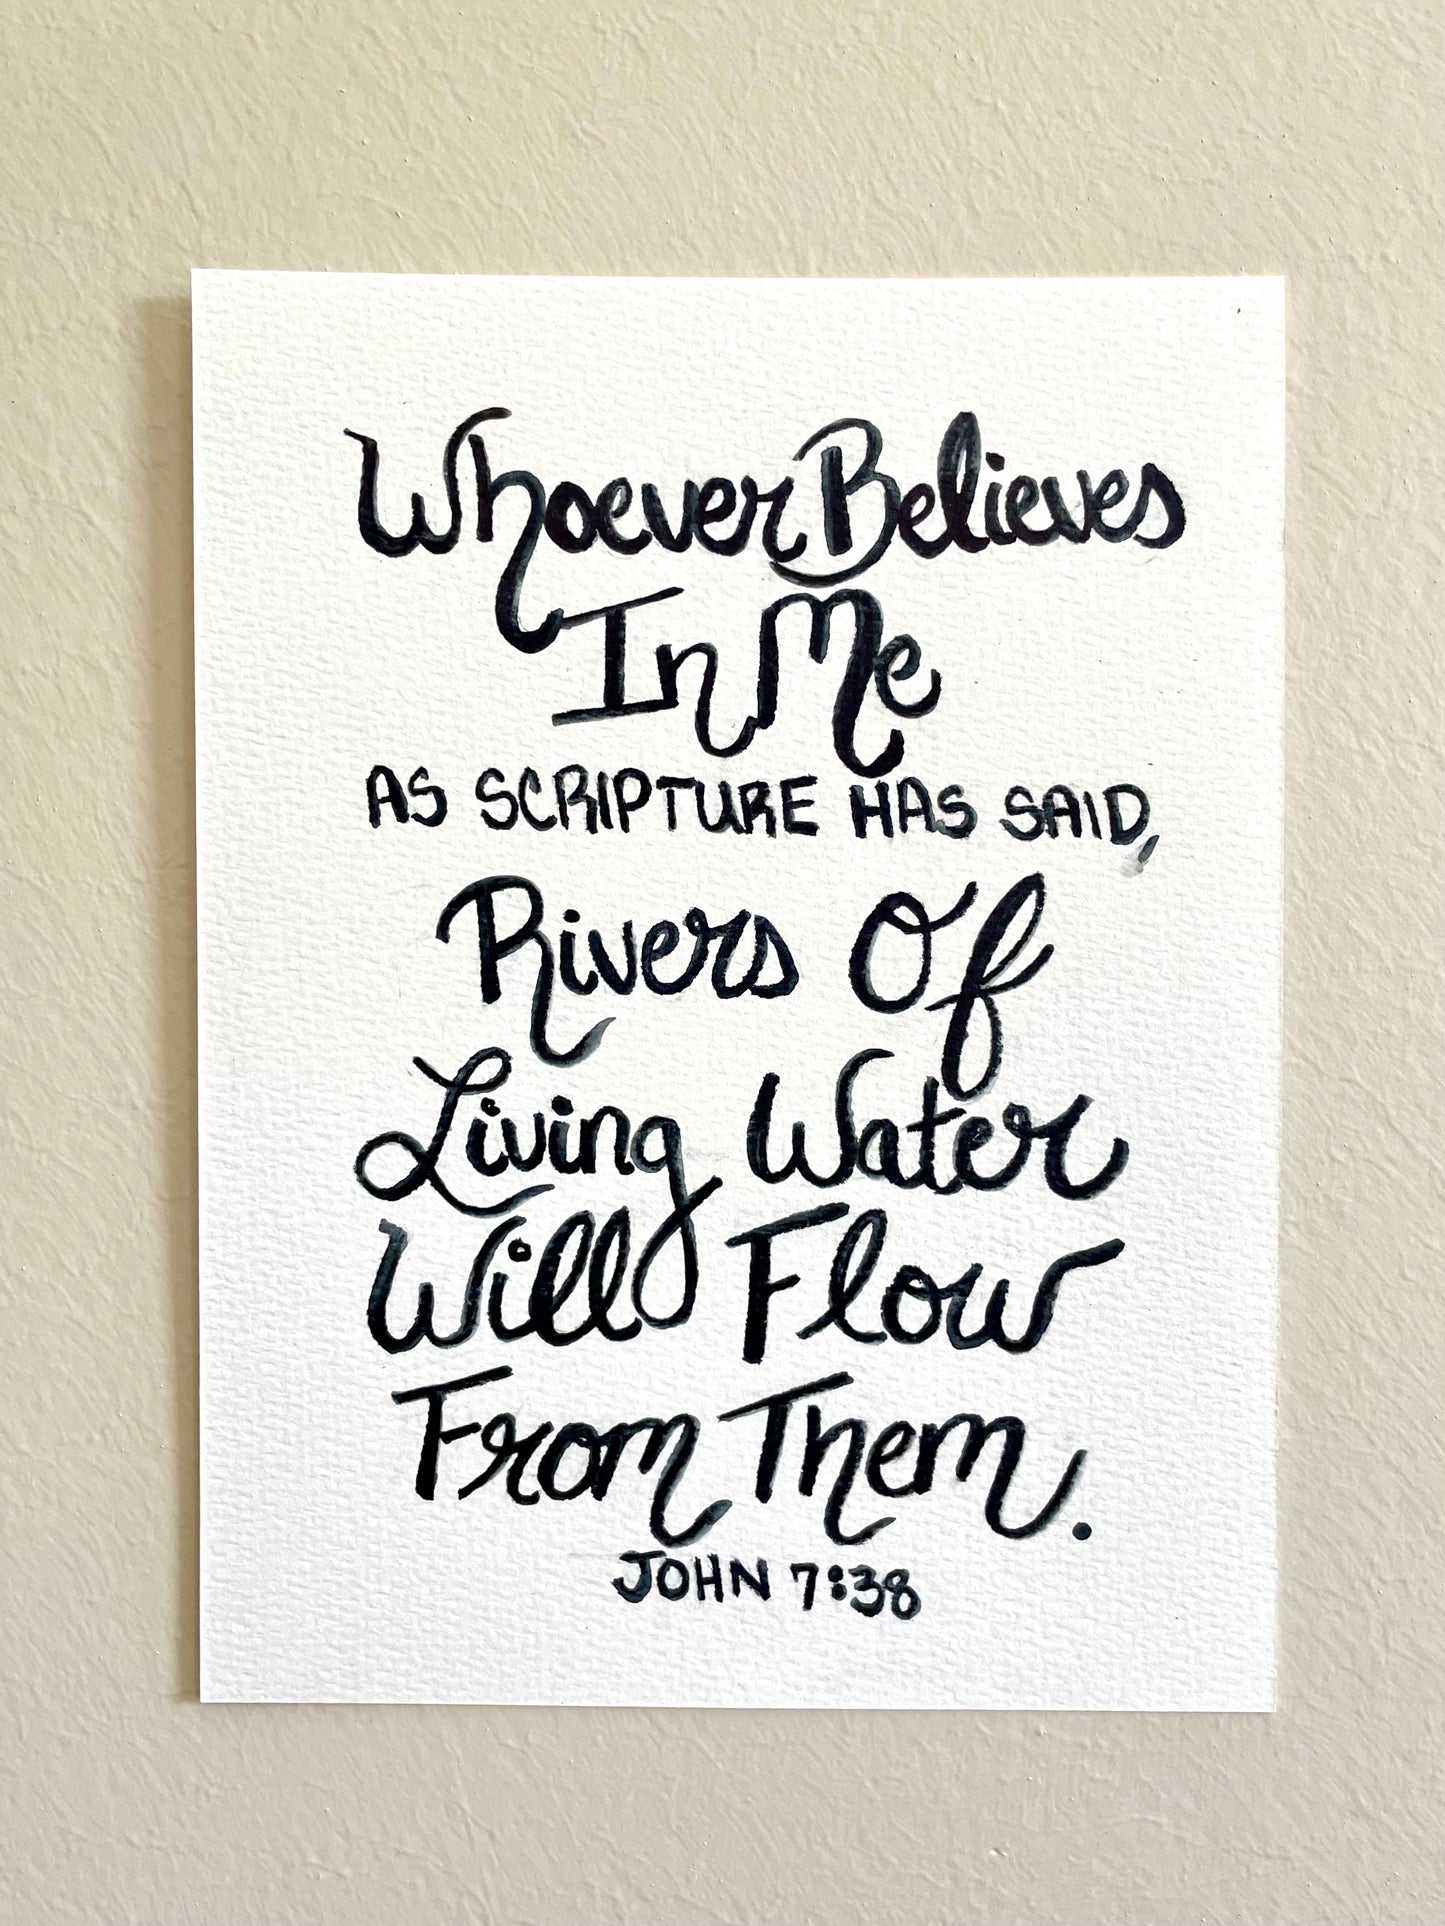 Whoever Believes
In Me
AS SCRIPTURE HAS SAID,
Rivers Of
Living Water
Will Flow
From Them.
JOHN 7:38